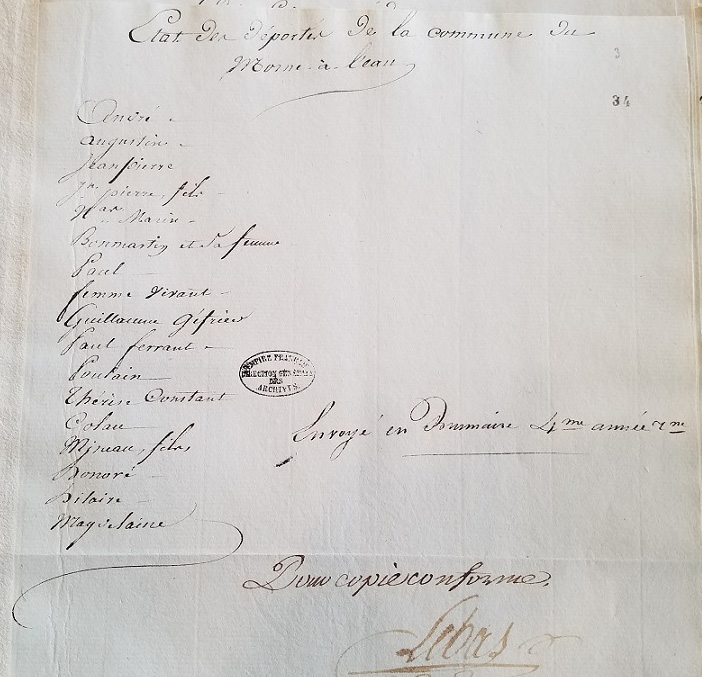 Etat des déportés de la commune du
Morne-à-l'eau
3
34
André
augustin
Jean pierre
Jn pierre, fils
Marin
Bonmartin et sa femme
Paul
femme vivant
Guillaume Gifrier
Paul ferrant
Poulain
Therese Constant
Colau
Mineau, fils
honoré
hilaire
Magdelaine
EMPIRE FRANÇAIS
DIRECTION GÉNÉRALE
DES
ARCHIVES
Envoyé en Brumaire 4me année
Pour copie conforme,
Lebas